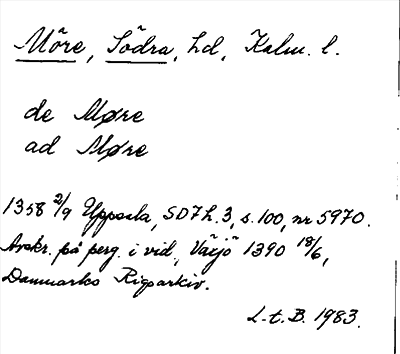 Möre, Södra, hd, Kalm. l.
de Møre
ad Møre
1358 2/9 Uppsala, SD 7 h. 3, s. 100, nr 5970.
Avskr. på perg. i vid., Växjö 1390 18/6,
Danmarks Rigsarkiv.
L-t. B. 1983.